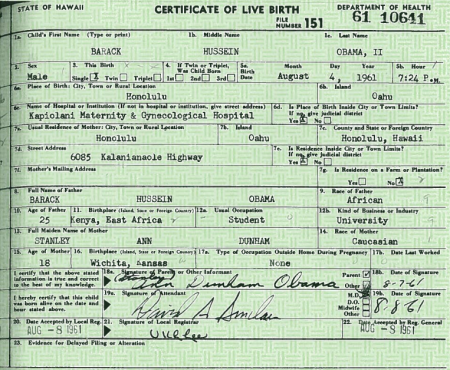 STATE OF HAWAII CERTIFICATE OF LIVE BIRTH DEPARTMENT OF HEALTH
FILE NUMBER 151 61 10641
1a. Child's First Name (Type or print) 1b. Middle Name 1c. Last Name
BARACK HUSSEIN OBAMA, II
2. Sex 3. This Birth 4. If Twin or Triplet, Was Child Born 5a. Birth Date Month Day Year 5b. Hour
Male Single X Twin Triplet 1st 2nd 3rd August 4, 1961 7:24 P.M.
6a. Place of Birth: City, Town or Rural Location 6b. Island
Honolulu Oahu
6c. Name of Hospital or Institution (If not in hospital or institution, give street address) 6d. Is Place of Birth Inside City or Town Limits? If no, give judicial district
Kapiolani Maternity & Gynecological Hospital Yes X No
7a. Usual Residence of Mother: City, Town or Rural Location 7b. Island 7c. County and State or Foreign Country
Honolulu Oahu Honolulu, Hawaii
7d. Street Address 7e. Is Residence Inside City or Town Limits? If no, give judicial district
6085 Kalanianaole Highway Yes X No
7f. Mother's Mailing Address 7g. Is Residence on a Farm or Plantation?
Yes No X
8. Full Name of Father 9. Race of Father
BARACK HUSSEIN OBAMA African
10. Age of Father 11. Birthplace (Island, State or Foreign Country) 12a. Usual Occupation 12b. Kind of Business or Industry
25 Kenya, East Africa Student University
13. Full Maiden Name of Mother 14. Race of Mother
STANLEY ANN DUNHAM Caucasian
15. Age of Mother 16. Birthplace (Island, State or Foreign Country) 17a. Type of Occupation Outside Home During Pregnancy 17b. Date Last Worked
18 Wichita, Kansas None
I certify that the above stated information is true and correct to the best of my knowledge. 18a. Signature of Parent or Other Informant Parent Other 18b. Date of Signature
Dunham Obama 8-7-61
I hereby certify that this child was born alive on the date and hour stated above. 19a. Signature of Attendant M.D. D.O. Midwife Other 19b. Date of Signature
David A Sinclair 8-8-61
20. Date Accepted by Local Reg. 21. Signature of Local Registrar 22. Date Accepted by Reg. General
AUG -8 1961 U K L Lee AUG -8 1961
23. Evidence for Delayed Filing or Alteration